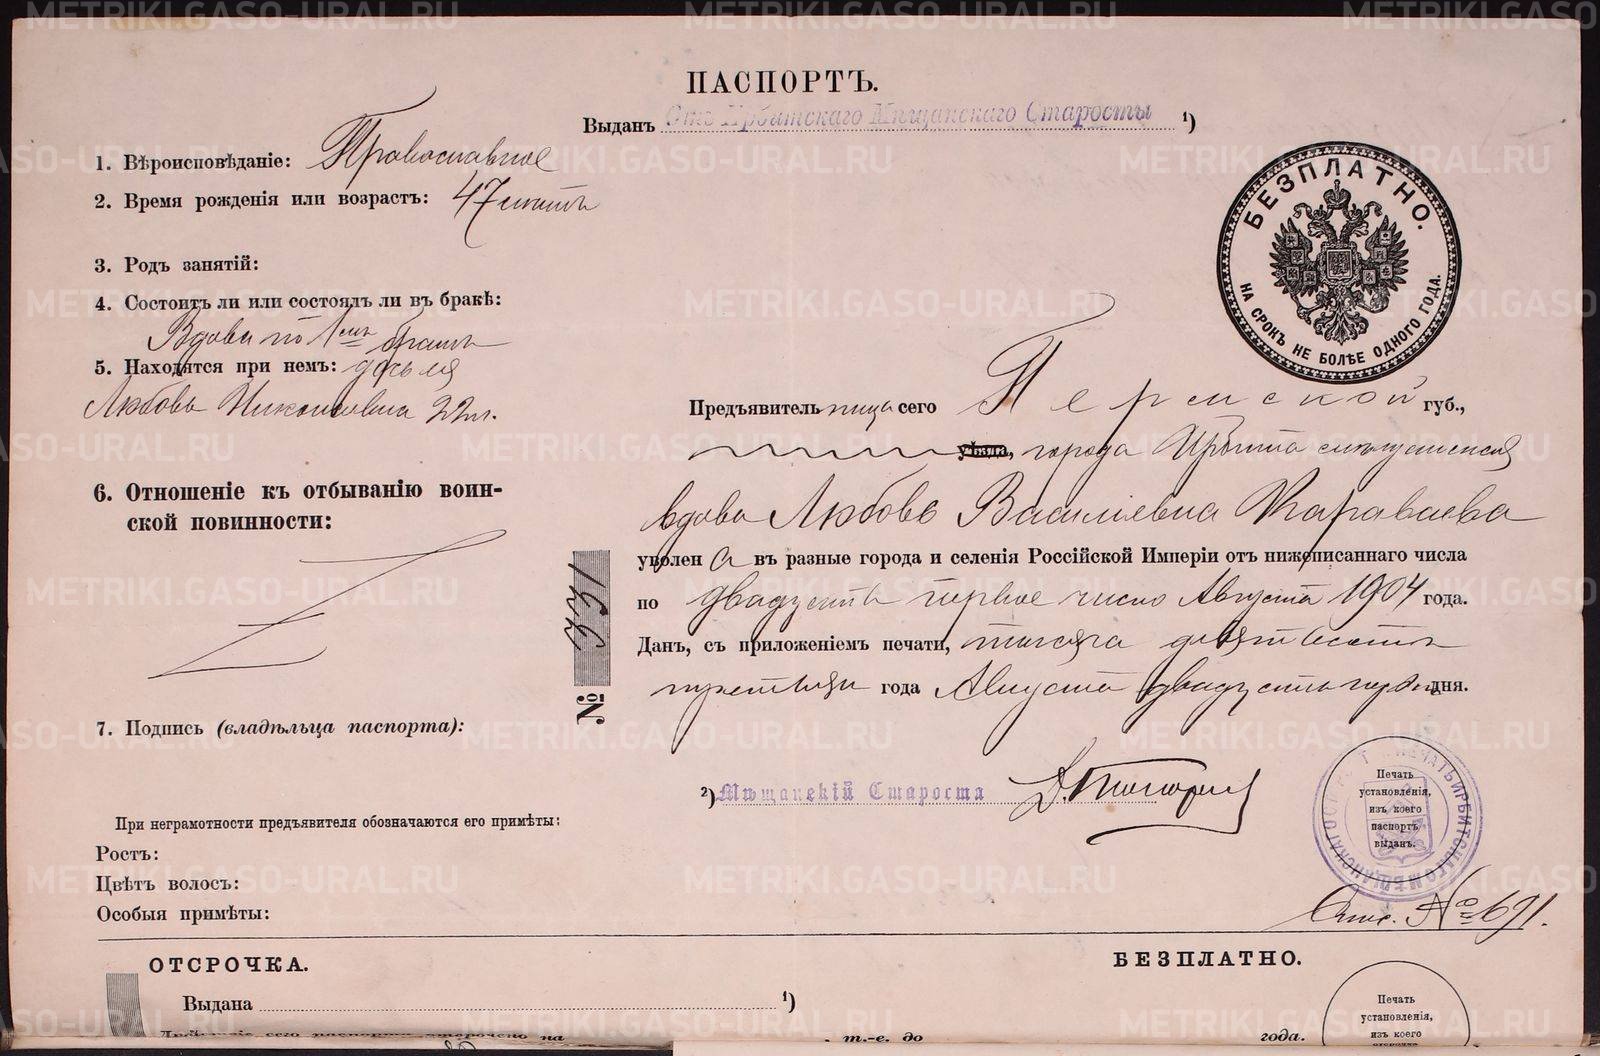 ПАСПОРТЪ.
Выданъ Отъ Ирбитскаго Мѣщанскаго Старосты ¹)
1. Вѣроисповѣданіе: Православное
2. Время рожденія или возрастъ: 47 лѣтъ
3. Родъ занятій:
4. Состоитъ ли или состоялъ ли въ бракѣ:
Вдова по 1мъ бракѣ
5. Находятся при немъ: дочь ея
Любовь Николаевна 22 л.
6. Отношеніе къ отбыванію воин-
ской повинности:
7. Подпись (владѣльца паспорта):
При неграмотности предъявителя обозначаются его примѣты:
Ростъ:
Цвѣтъ волосъ:
Особыя примѣты:
БЕЗПЛАТНО.
НА СРОКЪ НЕ БОЛѢЕ ОДНОГО ГОДА.
Предъявительница сего Пермской губ.,
города Ирбита мѣщанская
вдова Любовь Васильевна Караваева
уволена въ разные города и селенія Россійской Имперіи отъ нижеписаннаго числа
по двадцать первое число Августа 1904 года.
Данъ, съ приложеніемъ печати, тысяча девятьсотъ
третьяго года Августа двадцать перваго дня.
№ 331
²) Мѣщанскій Староста
Печать
установленія,
изъ коего
паспортъ
выданъ.
№ 691.
ОТСРОЧКА.
БЕЗПЛАТНО.
Выдана ¹)
Печать
установленія,
изъ коего
отсрочка
Дѣйствіе сего паспорта отсрочено на
т.-е. до года.
METRIKI.GASO-URAL.RU